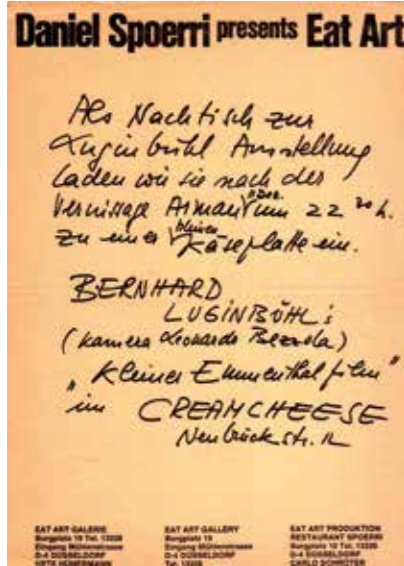 Daniel Spoerri presents Eat Art
Als Nachtisch zur
Luginbühl Ausstellung
laden wir sie nach der
Vernissage Arman um 22 30 h.
zu einer kleinen Käseplatte ein.
BERNHARD
LUGINBÜHL's
(Kamera Leonardo Bezzola)
"Kleiner Emmenthalfilm"
im CREAMCHEESE
Neubrückstr. 12
EAT ART GALERIE
Burgplatz 19 Tel. 13226
Eingang Mühlenstrasse
D-4 DÜSSELDORF
EAT ART GALLERY
Burgplatz 19
Eingang Mühlenstrasse
D-4 DÜSSELDORF
EAT ART PRODUKTION
RESTAURANT SPOERRI
Burgplatz 19 Tel. 13226
D-4 DÜSSELDORF
CARLO SCHRÖTER